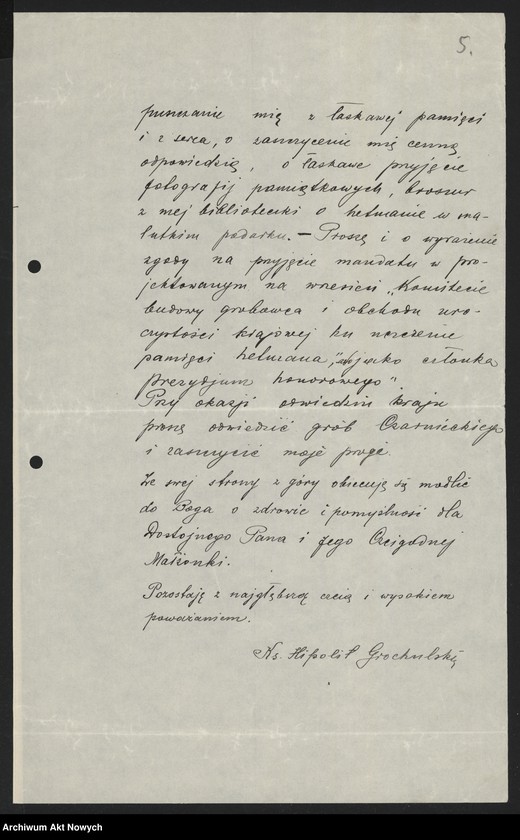 5.
puszczanie mię z łaskawej pamięci
i z serca, o zaszczycenie mię cenną
odpowiedzią, o łaskawe przyjęcie
fotografij pamiątkowych, broszur
z mej biblioteczki o hetmanie w ma-
lutkim podarku. — Proszę i o wyrażenie
zgody na przyjęcie mandatu w pro-
jektowanym na wrzesień „Komitecie
budowy grobowca i obchodu uro-
czystości krajowej ku uczczeniu
pamięci hetmana", jako członka
prezydjum honorowego".
Przy okazji odwiedzin kraju
proszę odwiedzić grób Czarnieckiego
i zaszczycić moje progi.
Ze swej strony z góry obiecuję się modlić
do Boga o zdrowie i pomyślność dla
Dostojnego Pana i Jego Czcigodnej
Małżonki.
Pozostaję z najgłębszą czcią i wysokiem
poważaniem.
Ks. Hipolit Grochulski
Archiwum Akt Nowych